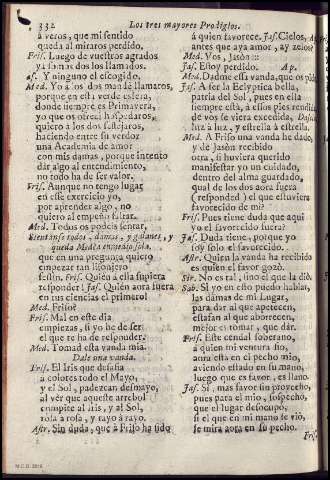 332 Los tres mayores Prodigios.
à veros, que mi sentido
queda al miraros perdido.
Fris. Luego de vuestros agrados
ya somos dos los llamados.
Jas. Y ninguno el escogido.
Med. Yo à los dos mandè llamaros,
porque en esta verde esfera,
donde siempre es Primavera,
ya que os ofrecì hospedaros,
quiero à los dos festejaros,
haciendo entre sus verdores
una Academia de amor
con mis damas, porque intento
dàr algo al entendimiento,
no todo ha de ser valor.
Fris. Aunque no tengo lugar
en esse exercicio yo,
por aprender algo, no
quiero al empeño faltar.
Med. Todos os podeis sentar,
Sientanse todos, damas, y galanes, y
queda Medèa en medio sola.
que en una pregunta quiero
empezar tan lisonjero
festin. Fris. Quièn à ella supiera
responder! Jas. Quièn aora fuera
en tus ciencias el primero!
Med. Friso?
Fris. Mal en este dia
empiezas, si yo he de ser
el que te ha de responder.
Med. Tomad esta vanda mia.
Dale una vanda.
Fris. El Iris que desafia
a colores todo el Mayo,
y el Sol, padezcan desmayo,
al vèr que aqueste arrebol
compite al Iris, y al Sol,
rosa a rosa, y rayo à rayo.
Astr. Sin duda, que à Friso ha sido
à quien favorece. Jas. Cielos, Ap.
antes que aya amor, ay zelos?
Med. Vos, Jason:::
Jas. Estoy perdido. Ap.
Med. Dadme essa vanda, que os pido.
Jas. A ser la Eclyptica bella,
patria del Sol, pues en ella
siempre està, à essos pies rendida
de vos se viera excedida,
luz à luz, y estrella à estrella.
Med. A Friso una vanda he dado,
y de Jasòn recibido
otra, si huviera querido
manifestar yo un cuidado,
dentro del alma guardado,
qual de los dos aora fuera
(responded) el que estuviera
favorecido de mi?
Fris. Pues tiene duda que aqui
yo el favorecido fuera?
Jas. Duda tiene, porque yo
soy solo el favorecido.
Astr. Quien la vanda ha recibido
es quien el favor gozò.
Sir. No es tal, sino el que la diò.
Sab. Si yo en esto puedo hablar,
las damas de mi Lugar,
para dar al que apetecen,
estafan al que aborrecen,
mejor es tomar, que dàr.
Fris. Este cendal soberano,
à quien mi ventura fio,
aora està en el pecho mio,
aviendo estado en su mano,
luego que es favor, es llano.
Jas. Sì, mas favor sin provecho,
pues para el mio, sospecho,
que el lugar desocupò,
si el que en mi mano se viò,
se mira aora en su pecho.
Fris.